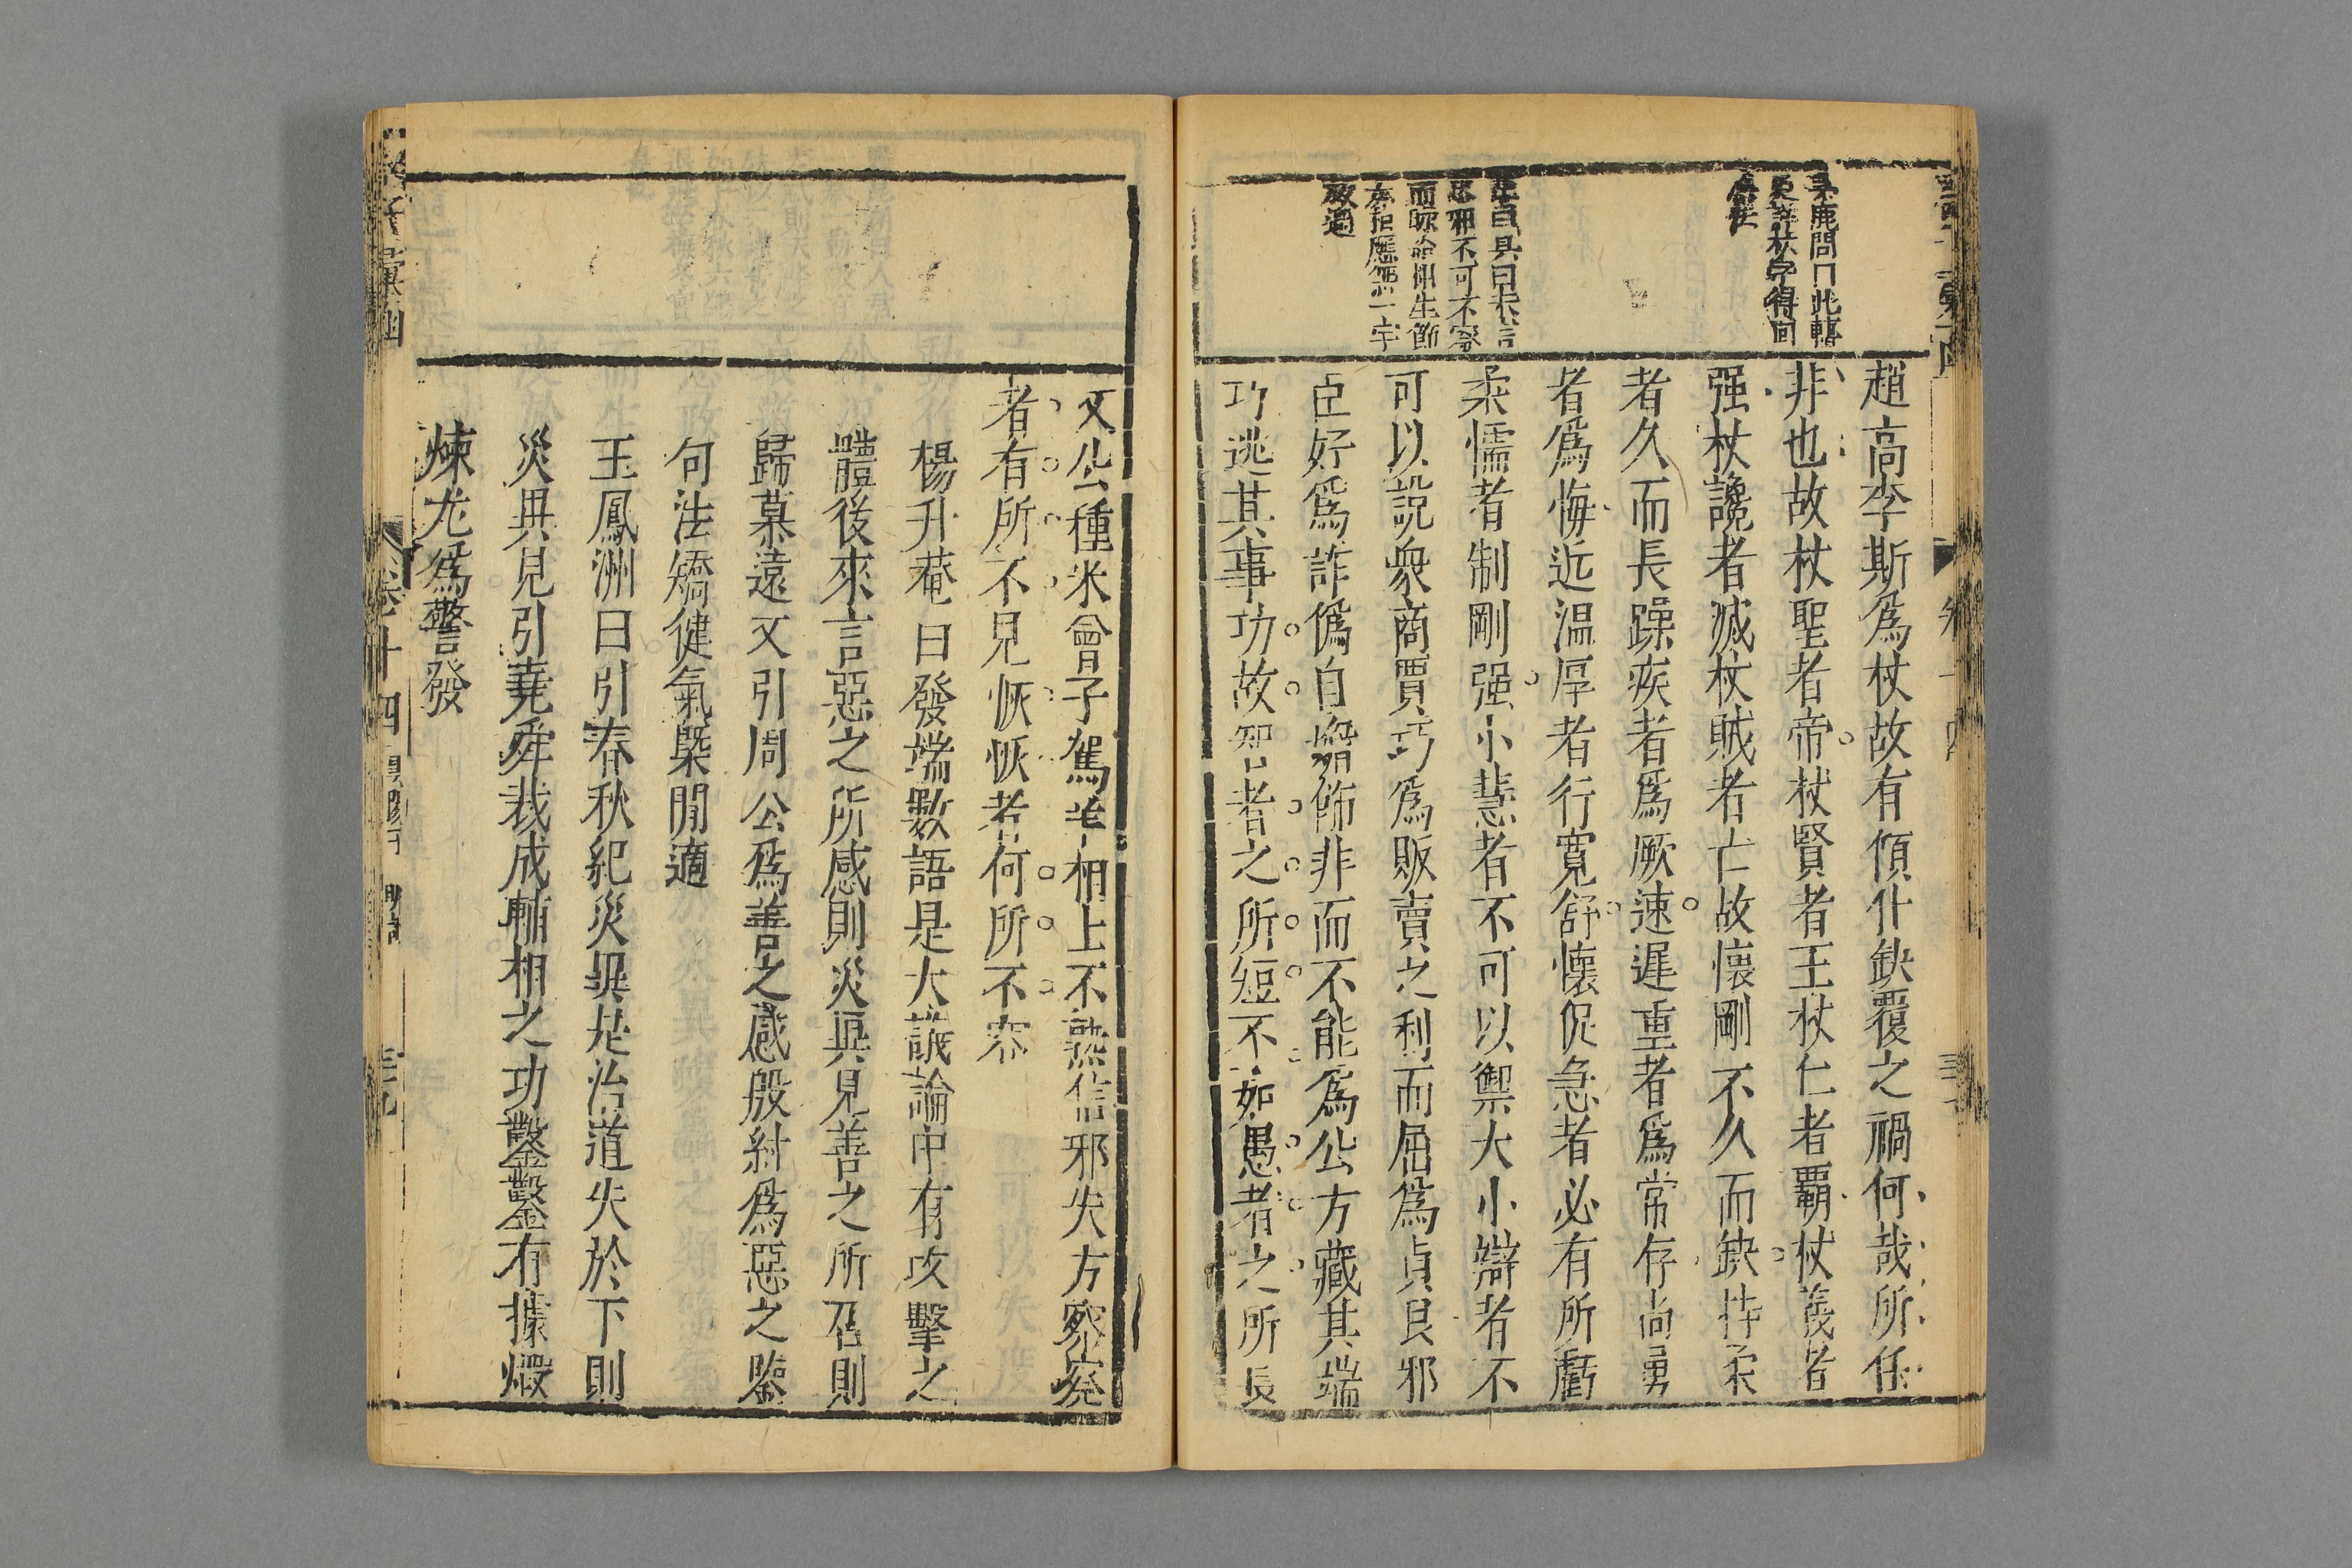 趙高李斯爲杖故有傾仆缺覆之禍何哉所任
非也故杖聖者帝杖賢者王杖仁者覇杖義者
强杖讒者滅杖賊者亡故懷剛不久而缺持柔
者久而長躁疾者爲厥速遲重者爲常存尚勇
者爲悔近温厚者行寬舒懷促急者必有所虧
柔懦者制剛强小慧者不可以禦大小辯者不
可以說衆商賈巧爲販賣之利而屈爲貞良邪
臣好爲詐僞自媚飾非而不能爲公方藏其端
巧逃其事功故智者之所短不如愚者之所長
文公種米曾子駕羊相上不熟信邪失方察察
者有所不見恢恢者何所不容
楊升菴曰發端數語是大議論中有攻擊之
體後來言惡之所感則災異見善之所召則
歸慕遠又引周公爲善之感殷紂爲惡之鑒
句法矯健氣槩閒適
王鳳洲曰引春秋紀災異是治道失於下則
災異見引堯舜裁成輔相之功鑿鑿有據煅
煉尤爲警發
卷十四